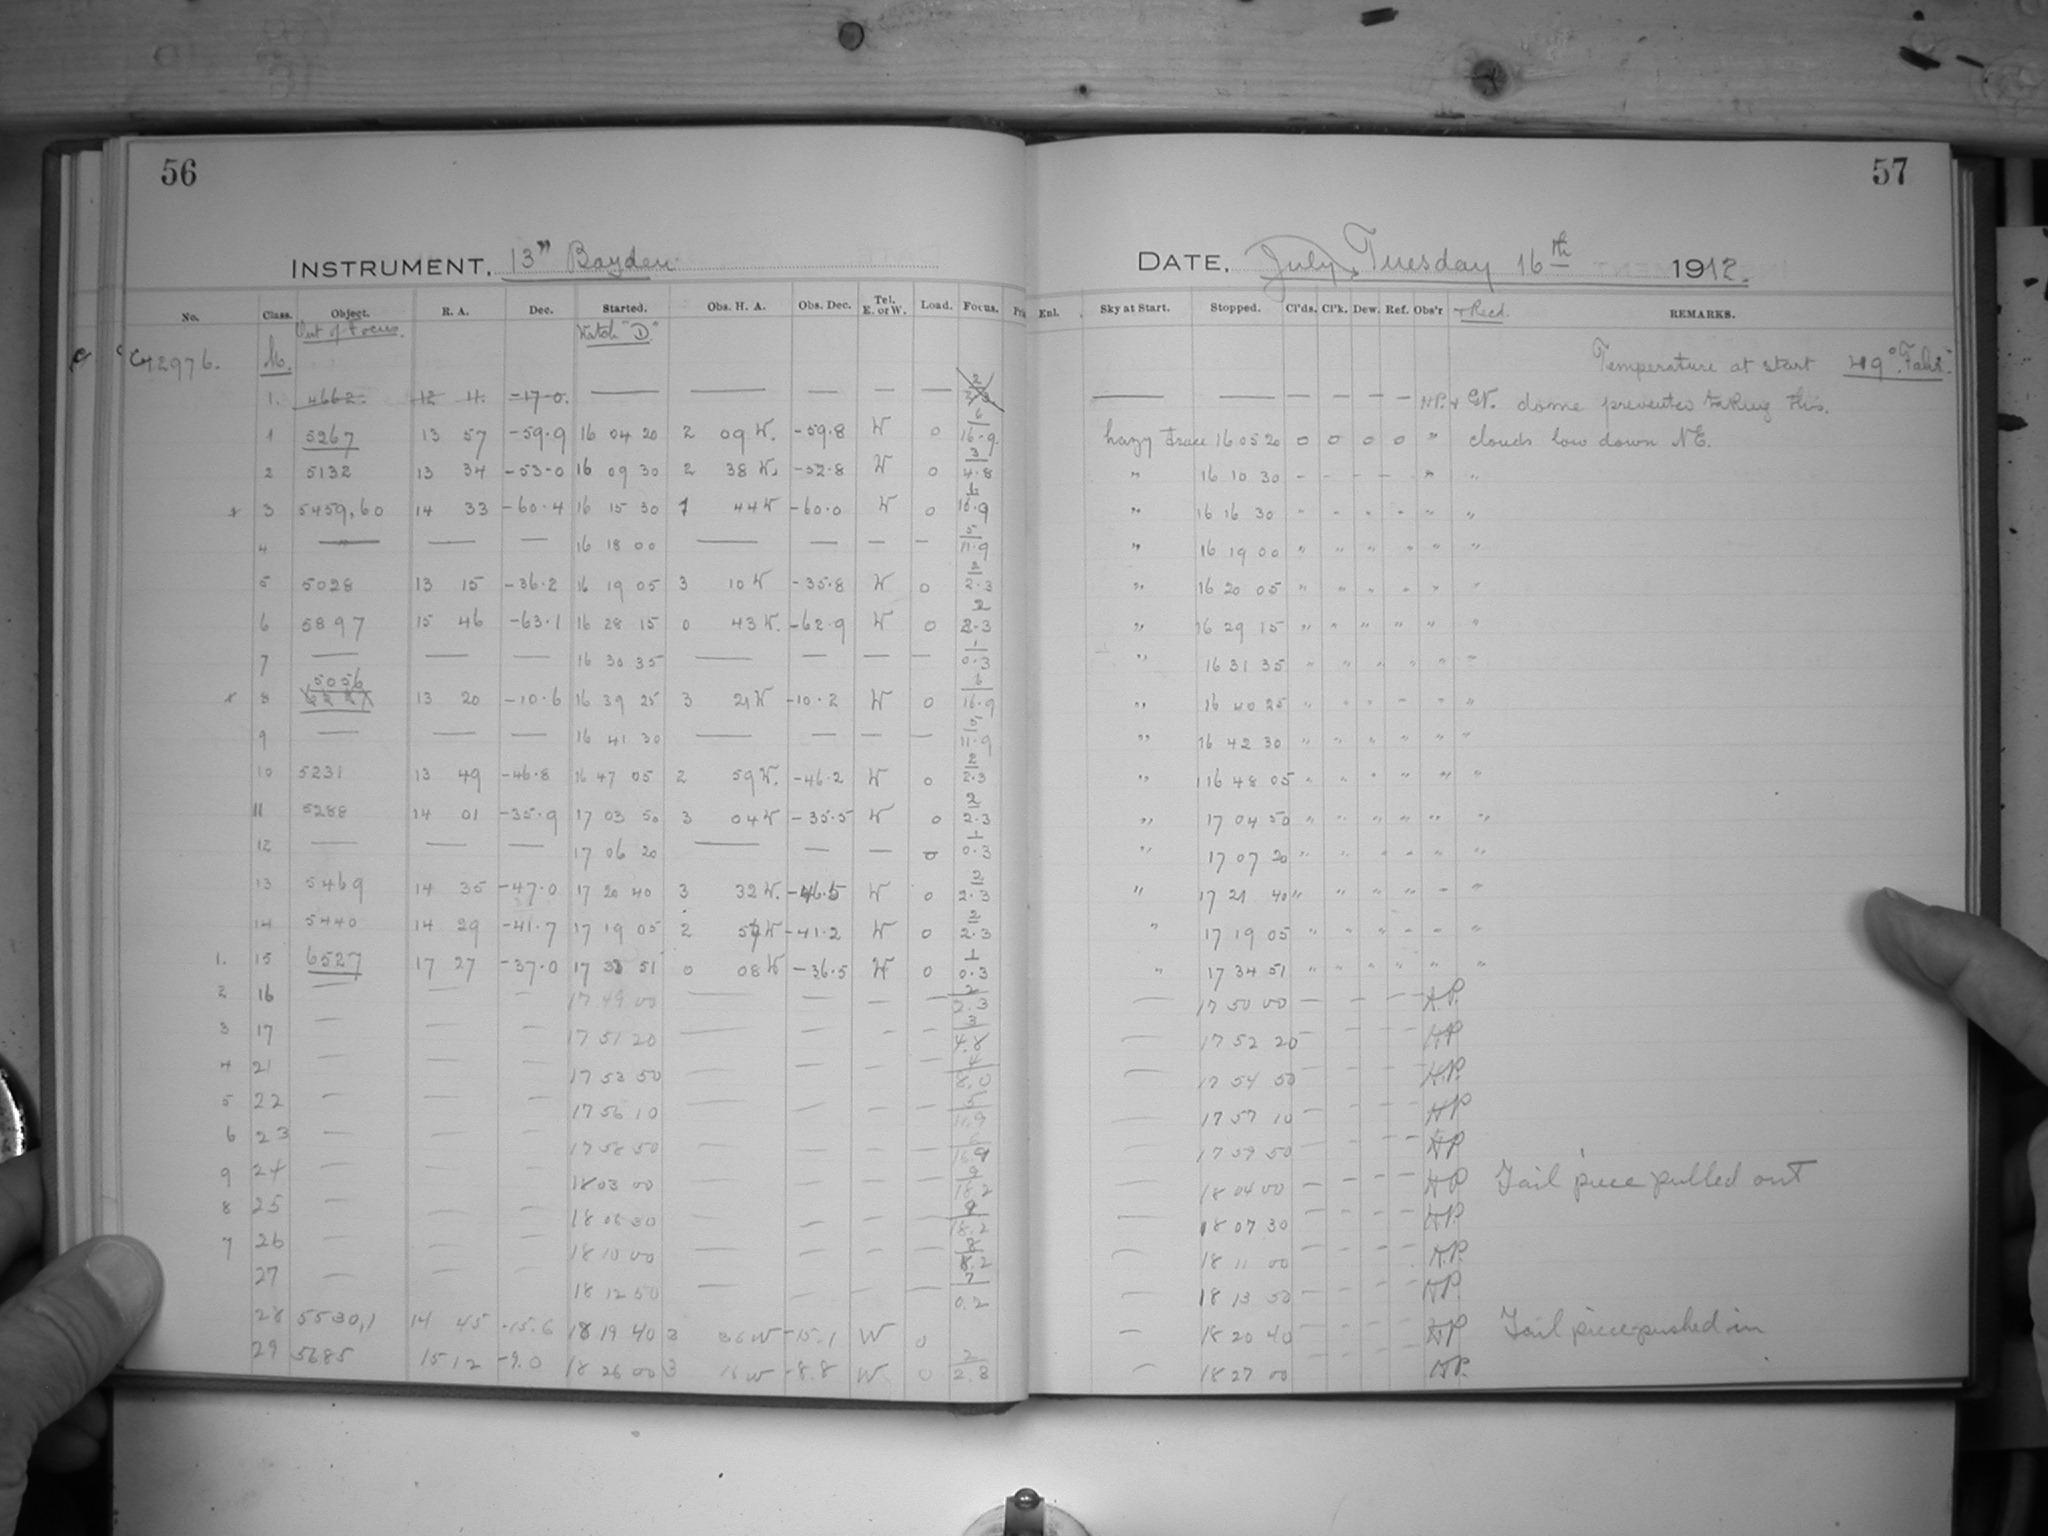 56
INSTRUMENT, 13" Boyden
No. Class. Object. R. A. Dec. Started. Obs. H. A. Obs. Dec. Tel. E. or W. Load. Focus.
Out of Focus. Watch "D"
C42976. M.
1. 4662. 12 11. -17-0. — — — — — 2
1 5267 13 57 -59.9 16 04 20 2 09 W. -59.8 W 0 6/16.9
2 5132 13 34 -53-0 16 09 30 2 38 W. -52.8 W 0 3/4.8
x 3 5459,60 14 33 -60.4 16 15 30 1 44 W -60.0 W 0 6/16.9
4 — " — — — 16 18 00 — — — — 5/11.9
5 5028 13 15 -36.2 16 19 05 3 10 W -35.8 W 0 2/2.3
6 5897 15 46 -63.1 16 28 15 0 43 W. -62.9 W 0 2/2.3
7 — — — 16 30 35 — — — — 1/0.3
x 8 5056 13 20 -10.6 16 39 25 3 21 W -10.2 W 0 6/16.9
9 — — — 16 41 30 — — — — 5/11.9
10 5231 13 49 -46.8 16 47 05 2 59 W. -46.2 W 0 2/2.3
11 5288 14 01 -35.9 17 03 50 3 04 W -35.5 W 0 2/2.3
12 — — — 17 06 20 — — — 0 1/0.3
13 5469 14 35 -47.0 17 20 40 3 32 W. -46.5 W 0 2/2.3
14 5440 14 29 -41.7 17 19 05 2 57 W -41.2 W 0 2/2.3
1. 15 6527 17 27 -37.0 17 33 51 0 08 W -36.5 W 0 1/0.3
2 16 — — — 17 49 00 — — — — 2/2.3
3 17 — — — 17 51 20 — — — — 3/4.8
4 21 — — — 17 53 50 — — — — 4/8.0
5 22 — — — 17 56 10 — — — — 5/11.9
6 23 — — — 17 58 50 — — — — 6/16.9
9 24 — — — 18 03 00 — — — — 9/18.2
8 25 — — — 18 06 30 — — — — 18.2
7 26 — — — 18 10 00 — — — — 8/8.2
27 — — — 18 12 50 — — — — 7/0.2
28 5530,1 14 45 -15.6 18 19 40 3 36 W -15.1 W 0
29 5685 15 12 -9.0 18 26 00 3 16 W -8.8 W 0 2/2.8
57
DATE, July, Tuesday 16th 1912.
Enl. Sky at Start. Stopped. Cl'ds. Cl'k. Dew. Ref. Obs'r + Recd. REMARKS.
Temperature at start 49° Fahr.
— — — — — — HP. + GN. dome prevented taking this.
hazy 16 05 20 0 0 0 0 " clouds low down NE.
" 16 10 30 - - - - " "
" 16 16 30 " " " " " "
" 16 19 00 " " " " " "
" 16 20 05 " " " " " "
" 16 29 15 " " " " " "
" 16 31 35 " " " " " "
" 16 40 25 " " " " " "
" 16 42 30 " " " " " "
" 16 48 05 " " " " " "
" 17 04 50 " " " " " "
" 17 07 20 " " " " " "
" 17 21 40 " " " " " "
" 17 19 05 " " " " " "
" 17 34 51 " " " " " "
— 17 50 00 — — — — H.P.
— 17 52 20 — — — — HP
— 17 54 50 — — — — H.P.
— 17 57 10 — — — — HP
— 17 59 50 — — — — HP
— 18 04 00 — — — — HP Tail piece pulled out
— 18 07 30 — — — — H.P.
— 18 11 00 — — — — H.P.
— 18 13 50 — — — — HP.
— 18 20 40 — — — — HP Tail piece pushed in
— 18 27 00 — — — — HP.